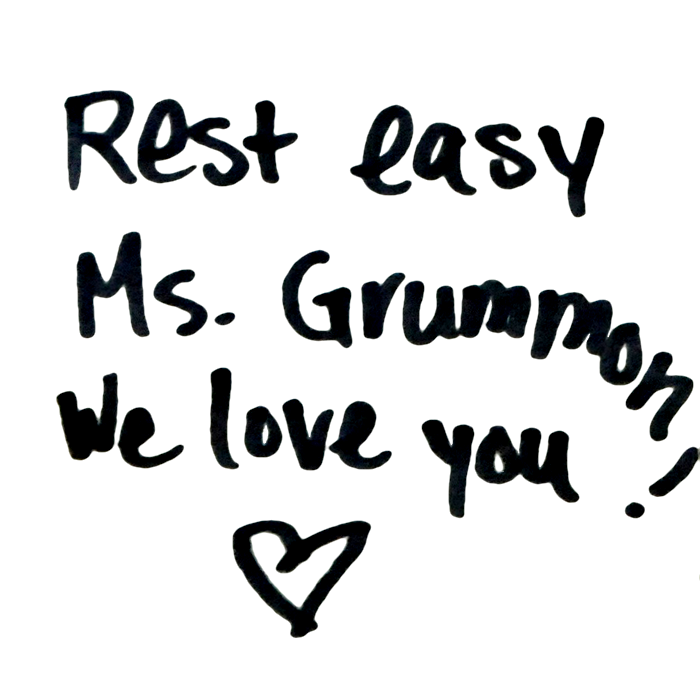 Rest easy
Ms. Grummon
We love you!